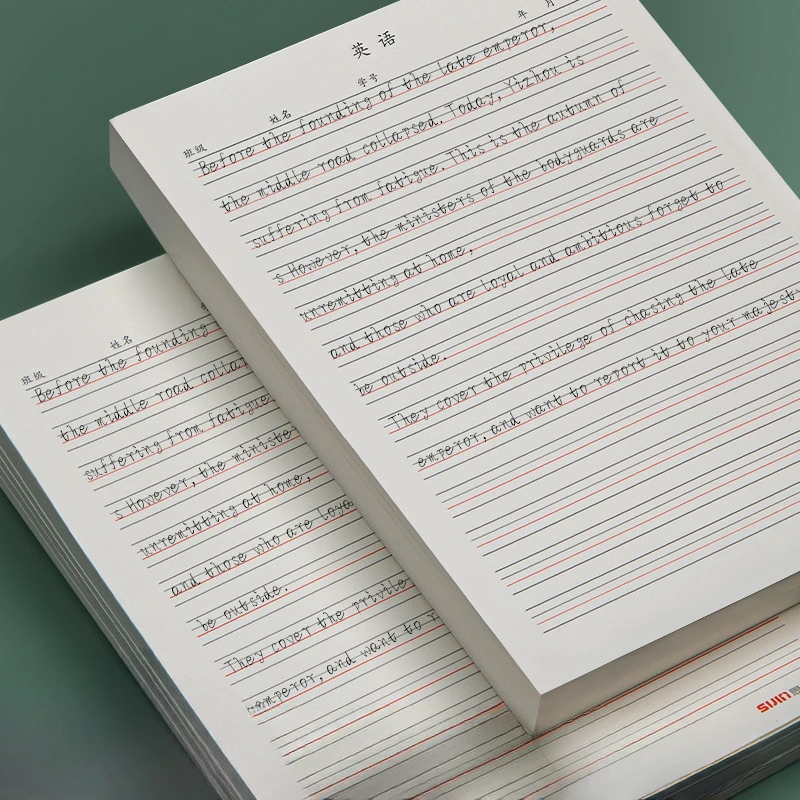 英语
年 月
班级 姓名 学号
Before the founding of the late emperor,
the middle road collapsed. Today, Yizhou is
suffering from fatigue. This is the autumn of
s However, the ministers of the bodyguards are
unremitting at home,
and those who are loyal and ambitious forget to
be outside.
They cover the privilege of chasing the late
emperor, and want to report it to your majest
班级 姓名
Before the founding
the middle road collap
suffering from fatigue.
s However, the ministe
unremitting at home,
and those who are loya
be outside.
They cover the privile
emperor, and want to r